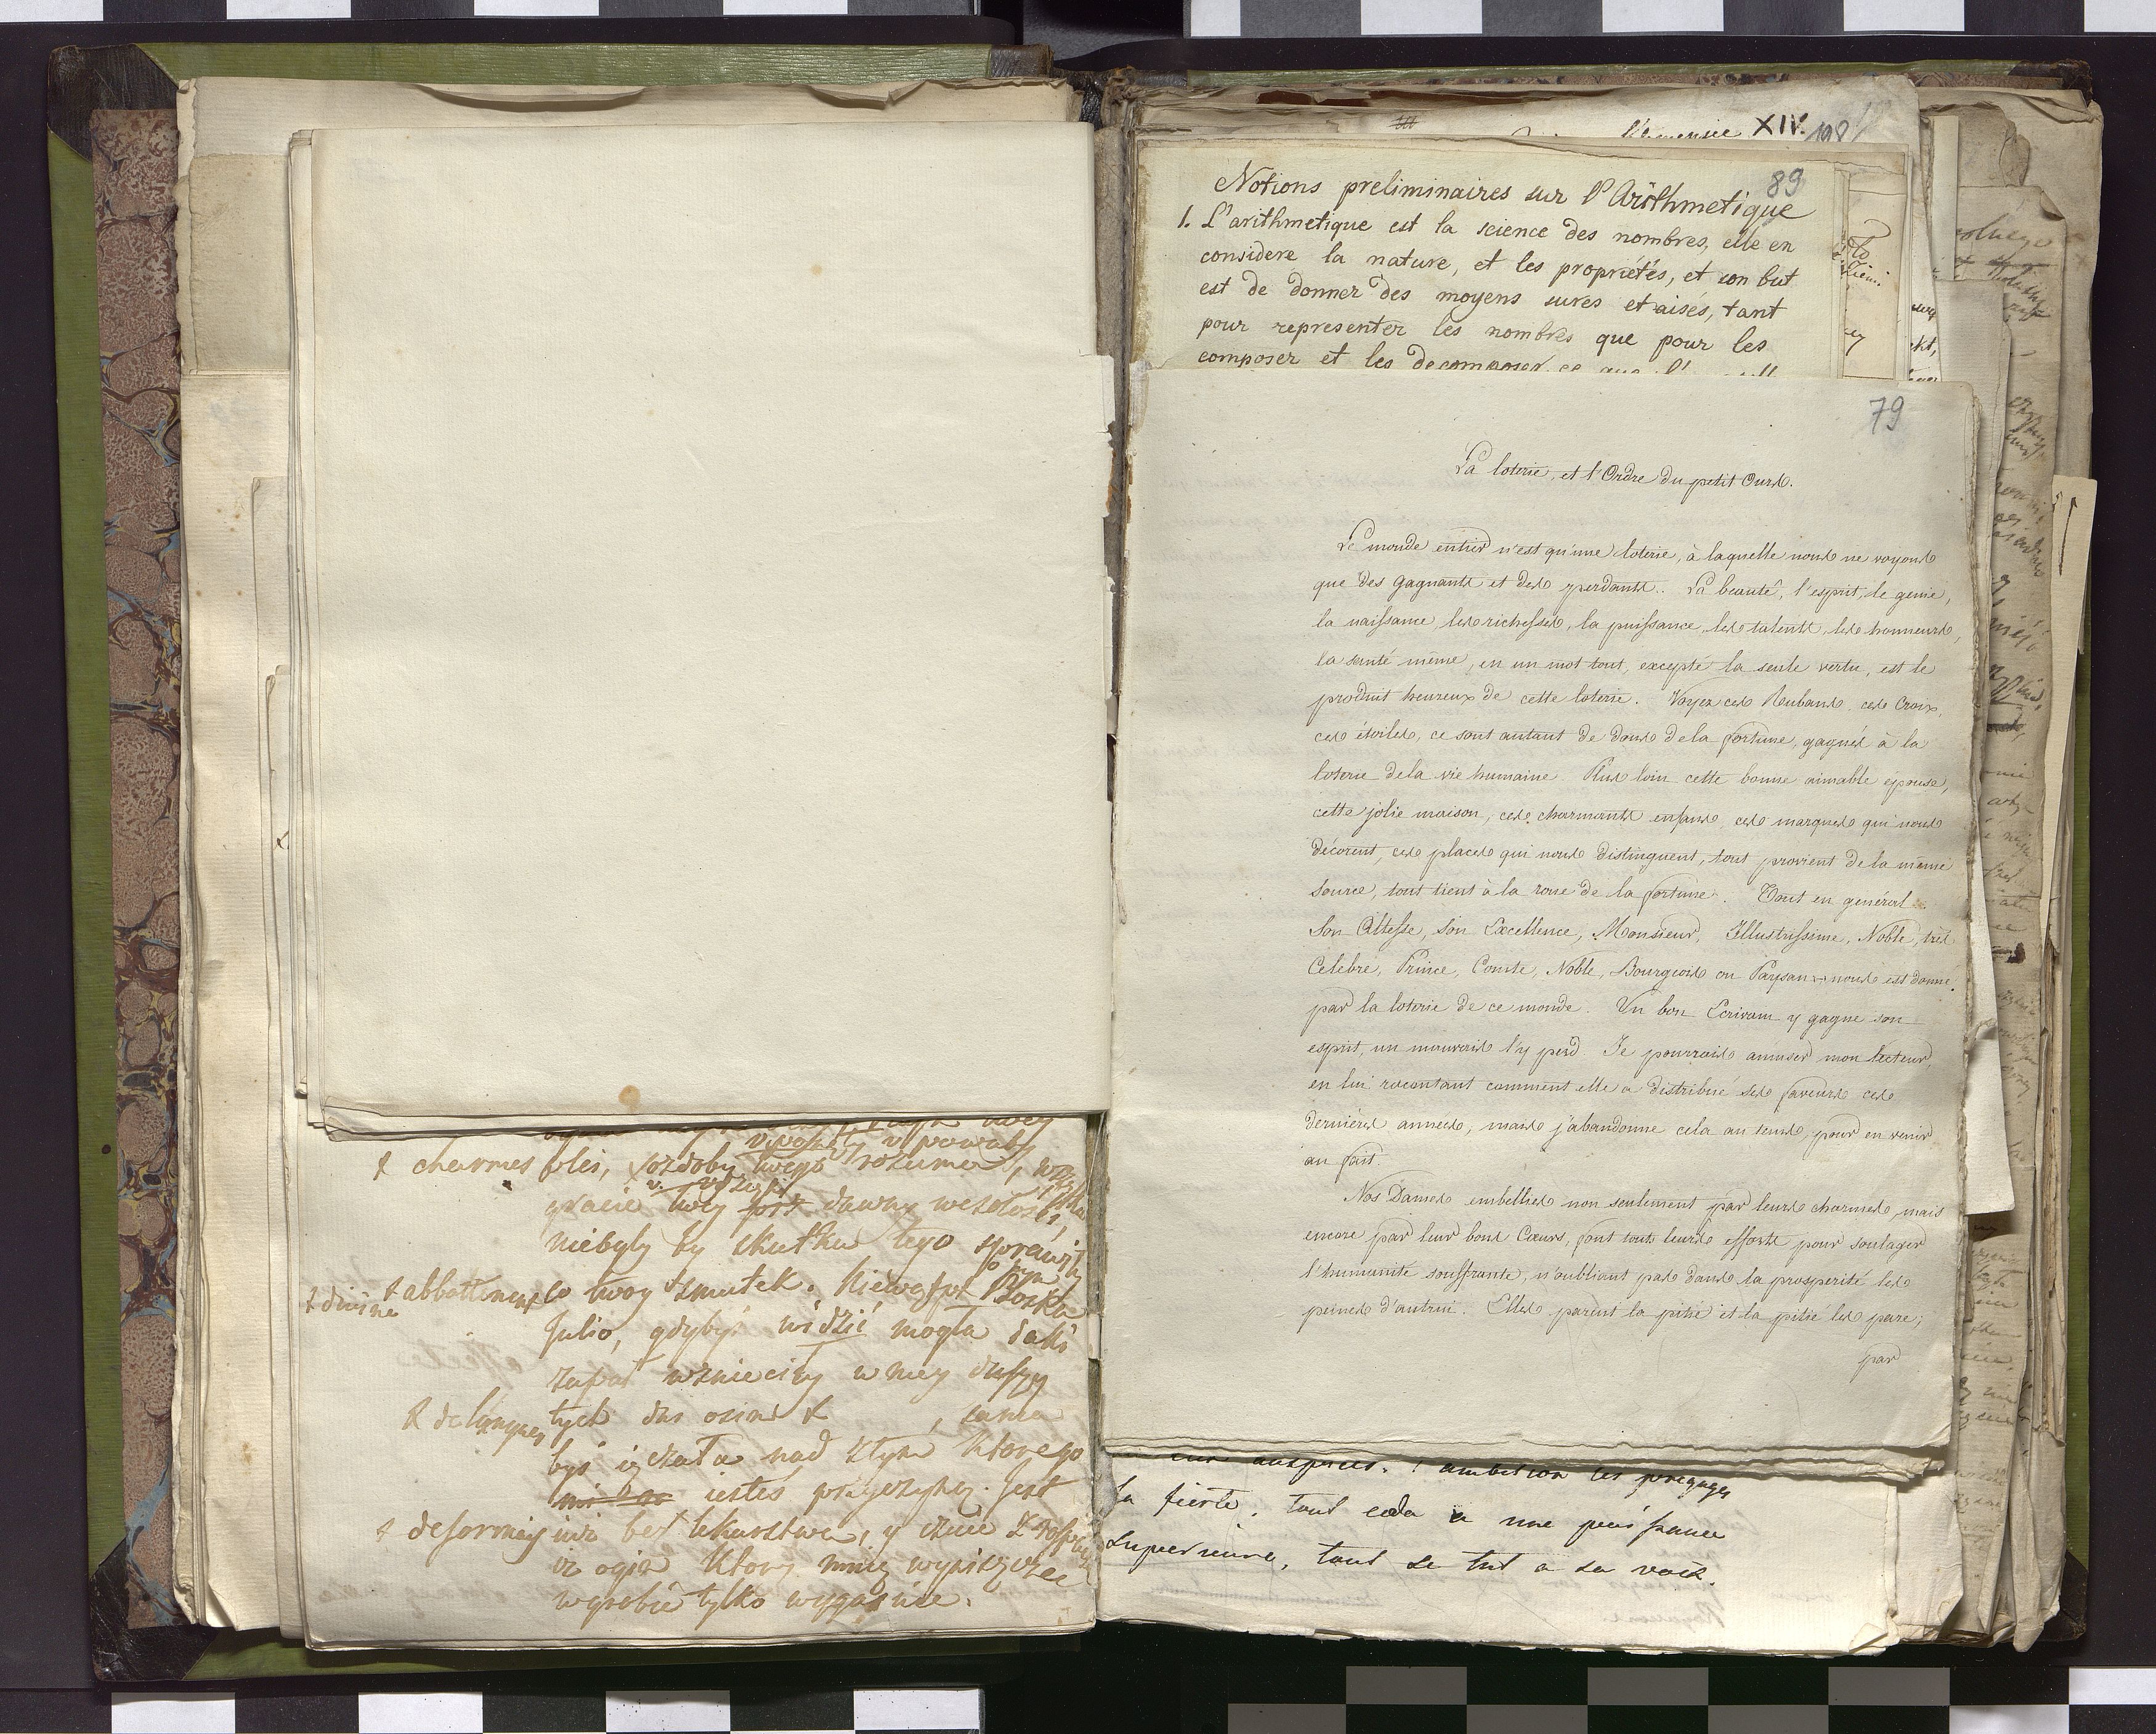 charmes płci, ozdoby twego rozumu,
gracie twey dawny wesołości,
niebyły by skutku tego sprawiły
abbattement co twoy smutek. Niewątpi Boska
divine
Julio, gdybyś widzić mogła iaki
zapał wzniecily w mey duszy
tych dni osim , sama
byś ięczała nad złym ktorego
iesteś przyczyną. Jest
desormais iuż bez lekarstwa, y czuie z
iż ogień ktory mnię
w grobie tylko wygaśnie.
XIV. 198
89
Notions preliminaires sur l'Arithmetique
1. L'arithmetique est la science des nombres, elle en
considere la nature, et les propriétés, et son but
est de donner des moyens sures et aisés, tant
pour representer les nombres que pour les
composer et les decomposer, ce que
79
La loterie, et l'Ordre du petit Ours.
Le monde entier n'est qu'une loterie, à laquelle nous ne voyons
que des gagnants et des perdants. La beauté, l'esprit, le genie,
la naissance, les richesses, la puissance, les talents, les honneurs,
la santé même, en un mot tout, excepté la seule vertu, est le
produit heureux de cette loterie. Voyez ces Rubans, ces Croix,
ces étoiles, ce sont autant de dons de la fortune, gagnés à la
loterie de la vie humaine. Plus loin cette bonne aimable epouse,
cette jolie maison, ces charmants enfans, ces marques qui nous
décorent, ces places qui nous distinguent, tout provient de la même
source, tout tient à la roue de la fortune. Tout en général
Son Altesse, Son Excellence, Monsieur, Illustrissime, Noble, très
Celebre, Prince, Comte, Noble, Bourgeois ou Paysan nous est donné
par la loterie de ce monde. Un bon Ecrivain y gagne son
esprit, un mauvais l'y perd. Je pourrais amuser mon lecteur,
en lui racontant comment elle a distribué ses faveurs ces
dernières années, mais j'abandonne cela au tems, pour en venir
au fait.
Nos Dames embellies non seulement par leurs charmes, mais
encore par leur bons Cœurs, font touts leurs efforts pour soulager
l'humanité souffrante, n'oubliant pas dans la prosperité les
peines d'autrui. Elles parent la pitié et la pitié les pare;
par
auspices. l'ambition les prejuges
la fierte, tout ceda a une puissance
superieure, tout se tut a sa voix.